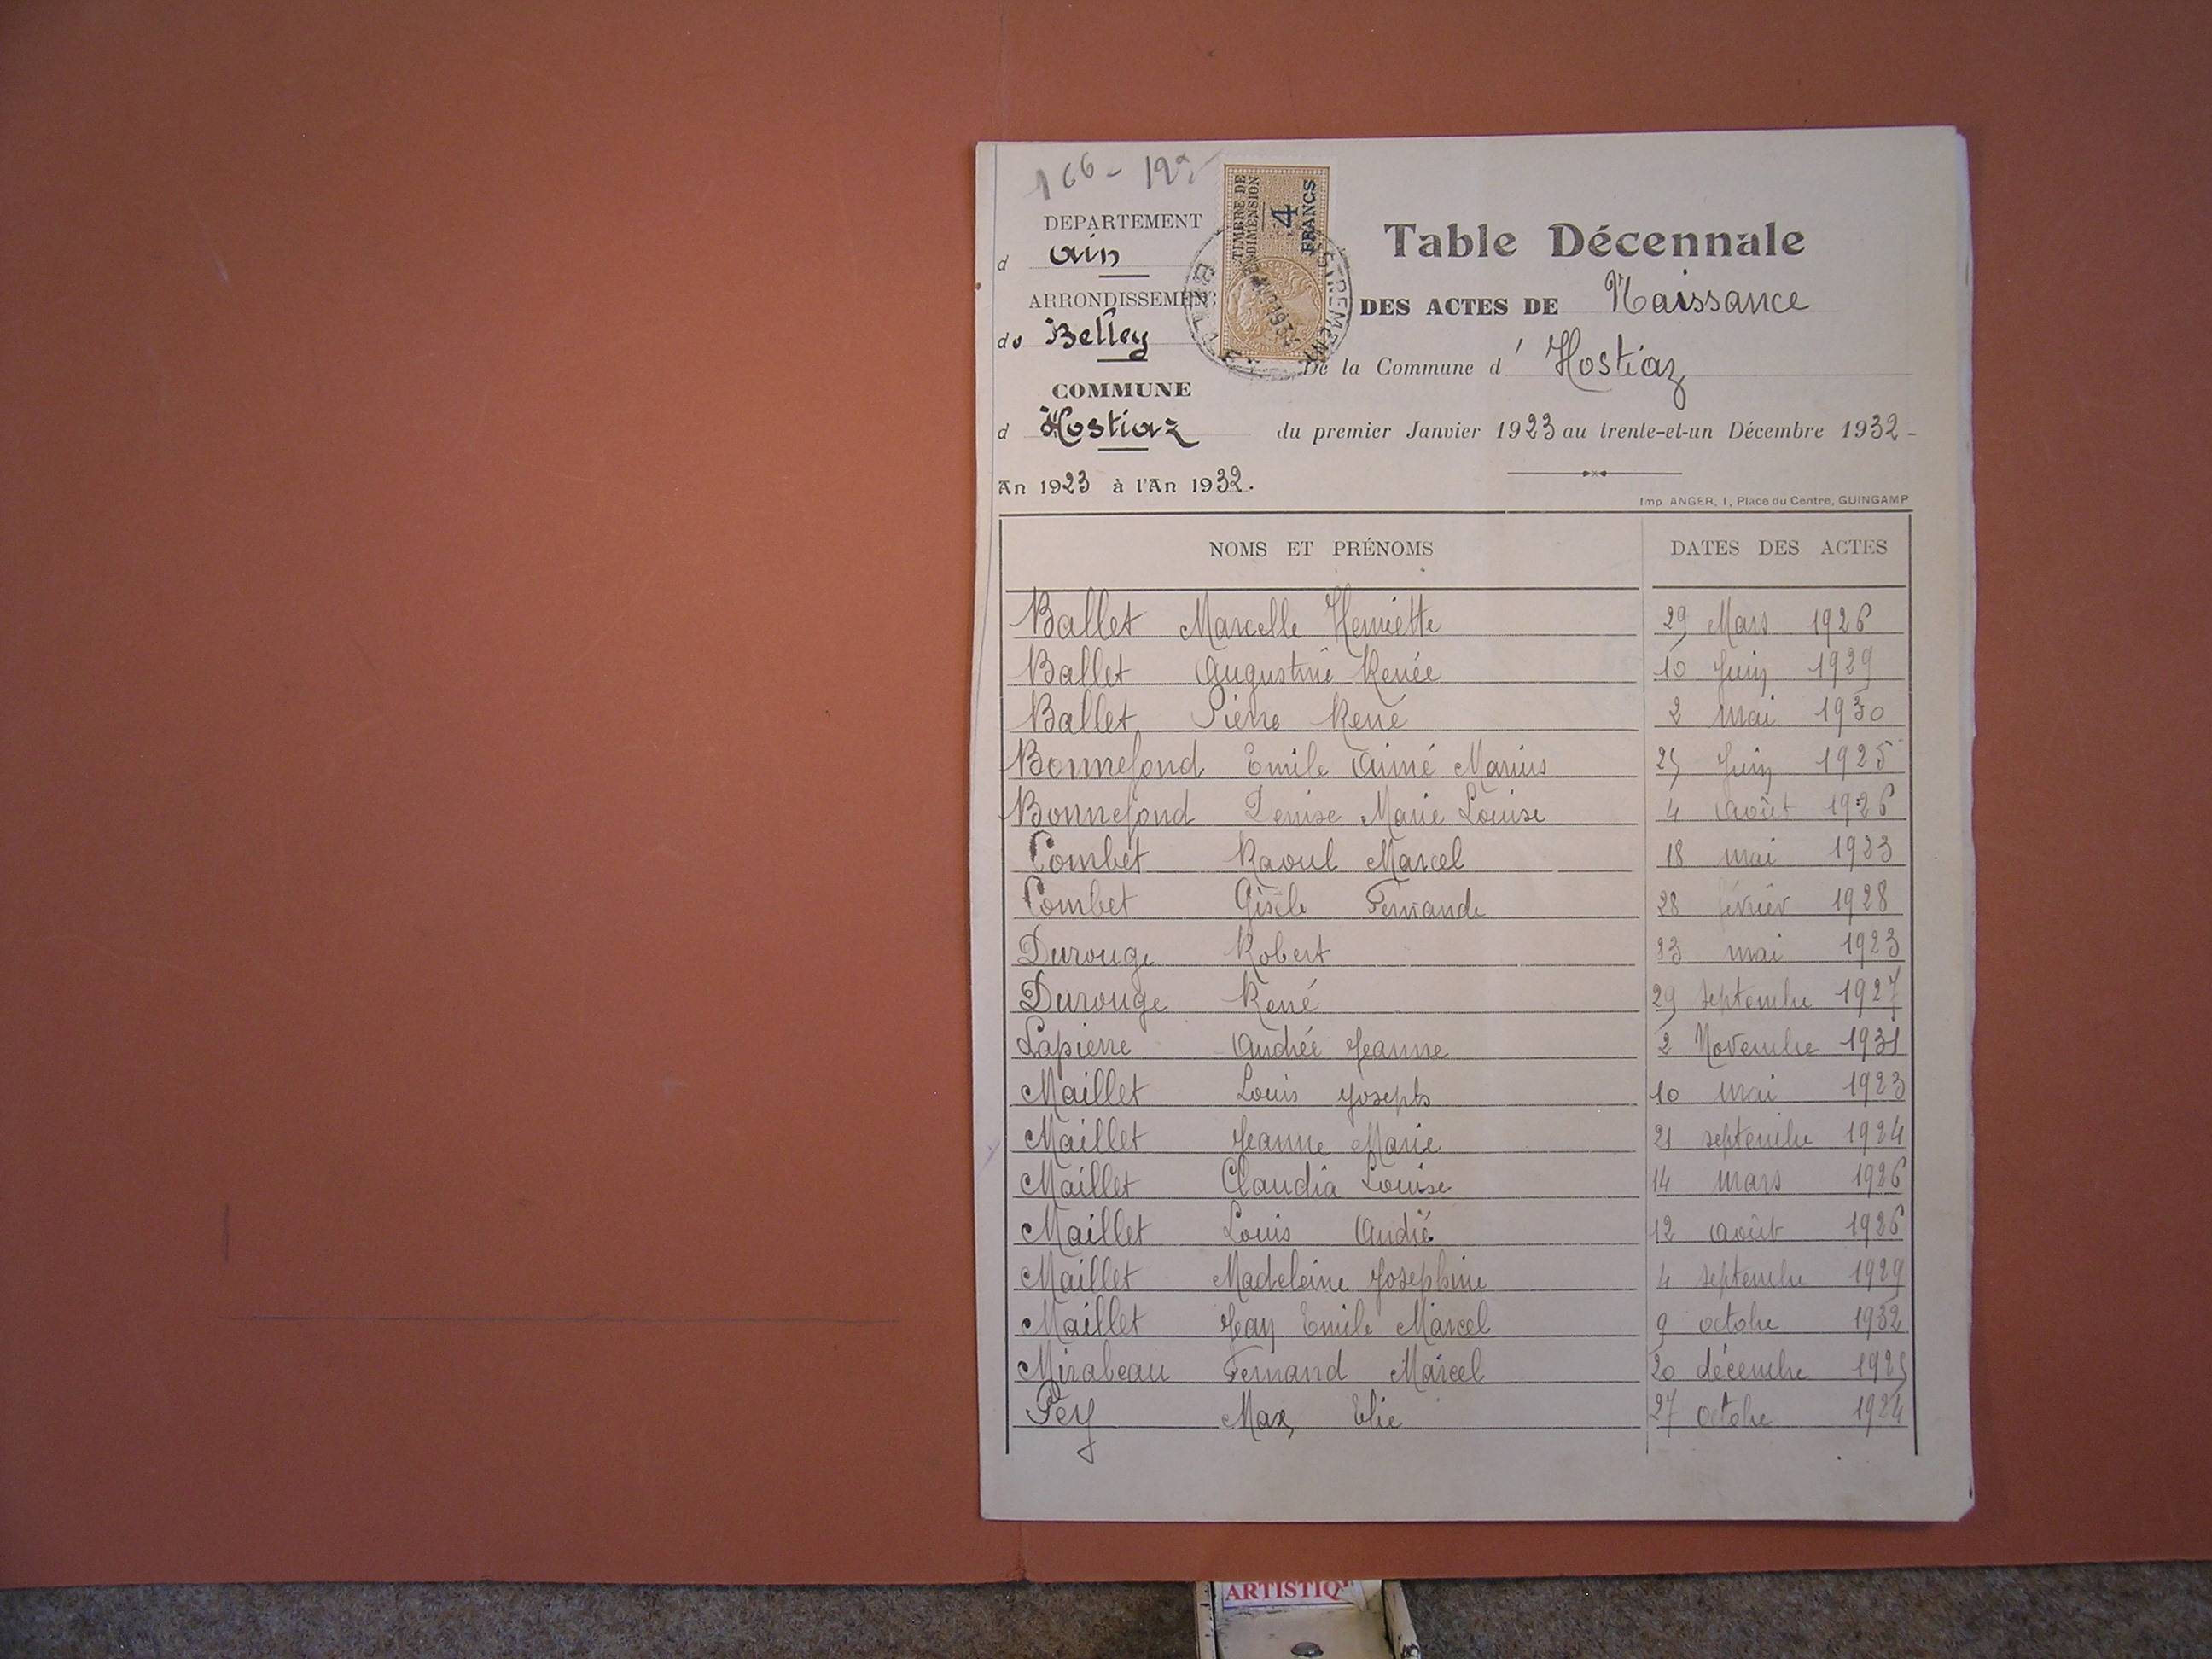 166 - 192
DEPARTEMENT
d Ain
ARRONDISSEMENT
de Belley
COMMUNE
d Hostiaz
An 1923 à l'An 1932.
TIMBRE DE
DIMENSION
4
FRANCS
Table Décennale
DES ACTES DE Naissance
De la Commune d' Hostiaz
du premier Janvier 1923 au trente-et-un Décembre 1932 -
Imp. ANGER, 1, Place du Centre, GUINGAMP
NOMS ET PRÉNOMS DATES DES ACTES
Ballet Marcelle Henriette 29 Mars 1926
Ballet Augustine Renée 10 Juin 1929
Ballet Pierre René 2 mai 1930
Bonnefond Emile Aimé Marius 25 Juin 1925
Bonnefond Denise Marie Louise 4 août 1926
Combet Raoul Marcel 18 mai 1923
Combet Gisèle Fernande 28 février 1928
Durouge Robert 23 mai 1923
Durouge René 29 septembre 1927
Lapierre Andrée Jeanne 2 Novembre 1931
Maillet Louis Joseph 10 mai 1923
Maillet Jeanne Marie 21 septembre 1924
Maillet Claudia Louise 14 mars 1926
Maillet Louis André 12 août 1926
Maillet Madeleine Josephine 4 septembre 1929
Maillet Jean Emile Marcel 9 octobre 1932
Mirabeau Fernand Marcel 20 décembre 1925
Pey Max Elie 27 octobre 1924
ARTISTIQ